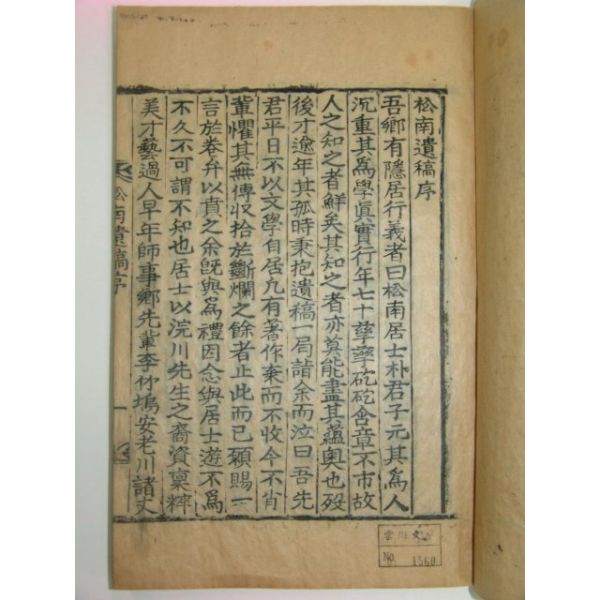 松南遺稿序
吾鄉有隱居行義者曰松南居士朴君子元其爲人
沉重其爲學眞實行年七十孳孳矻矻含章不市故
人之知之者鮮矣其知之者亦莫能盡其蘊奧也歿
後才逾年其孤時秉抱遺稿一局詣余而泣曰吾先
君平日不以文學自居凢有著作棄而不收今不肖
輩懼其無傳收拾於斷爛之餘者止此而已願賜一
言於卷弁以賁之余旣與爲禮因念與居士遊不爲
不久不可謂不知也居士以浣川先生之裔資稟粹
美才藝過人早年師事鄕先輩李竹塢安老川諸丈
松南遺稿序
一
No. 1560